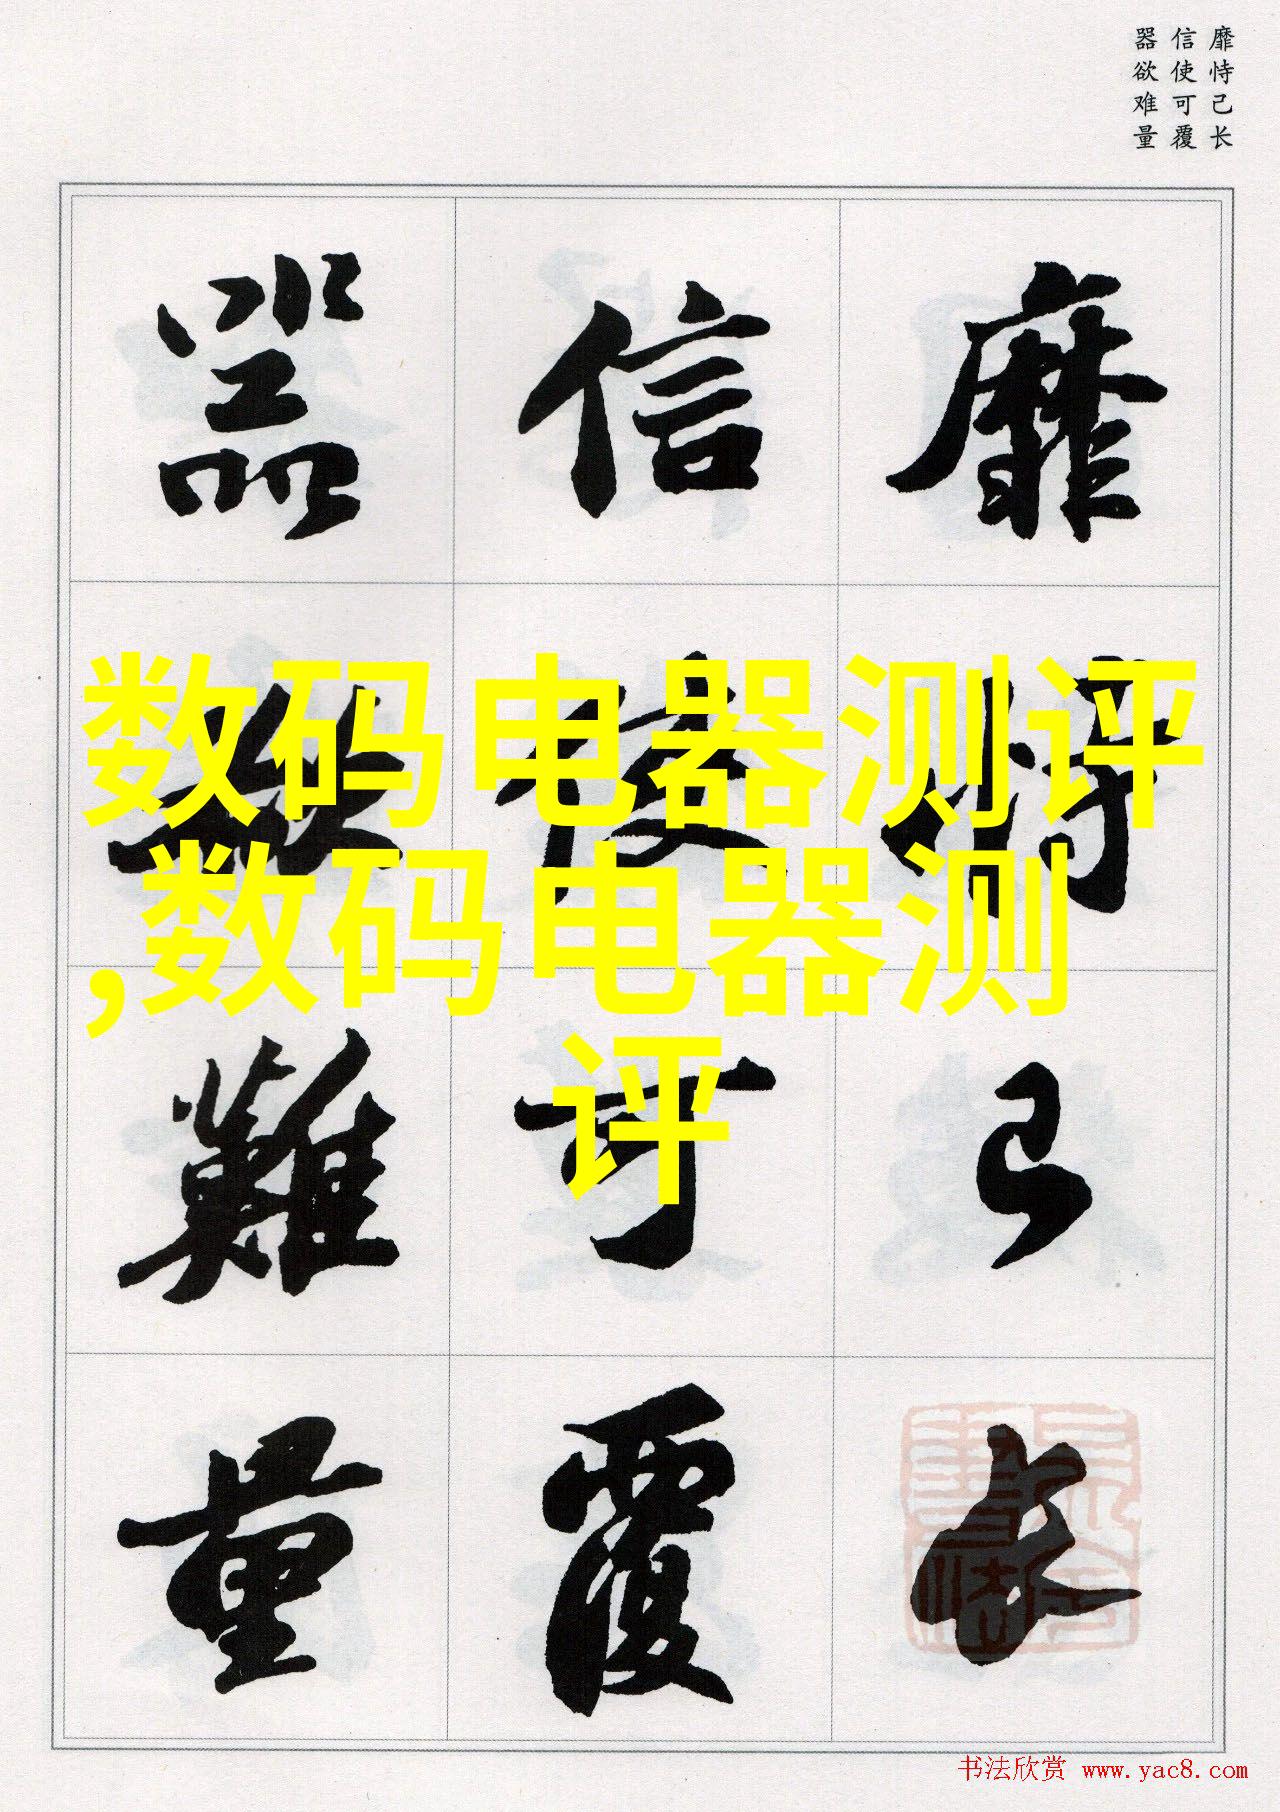 靡恃己长
信使可覆
器欲难量
靡恃己長
信使可覆
器欲難量
数码电器测评
,数码电器测
评
书法欣赏 www.yac8.com